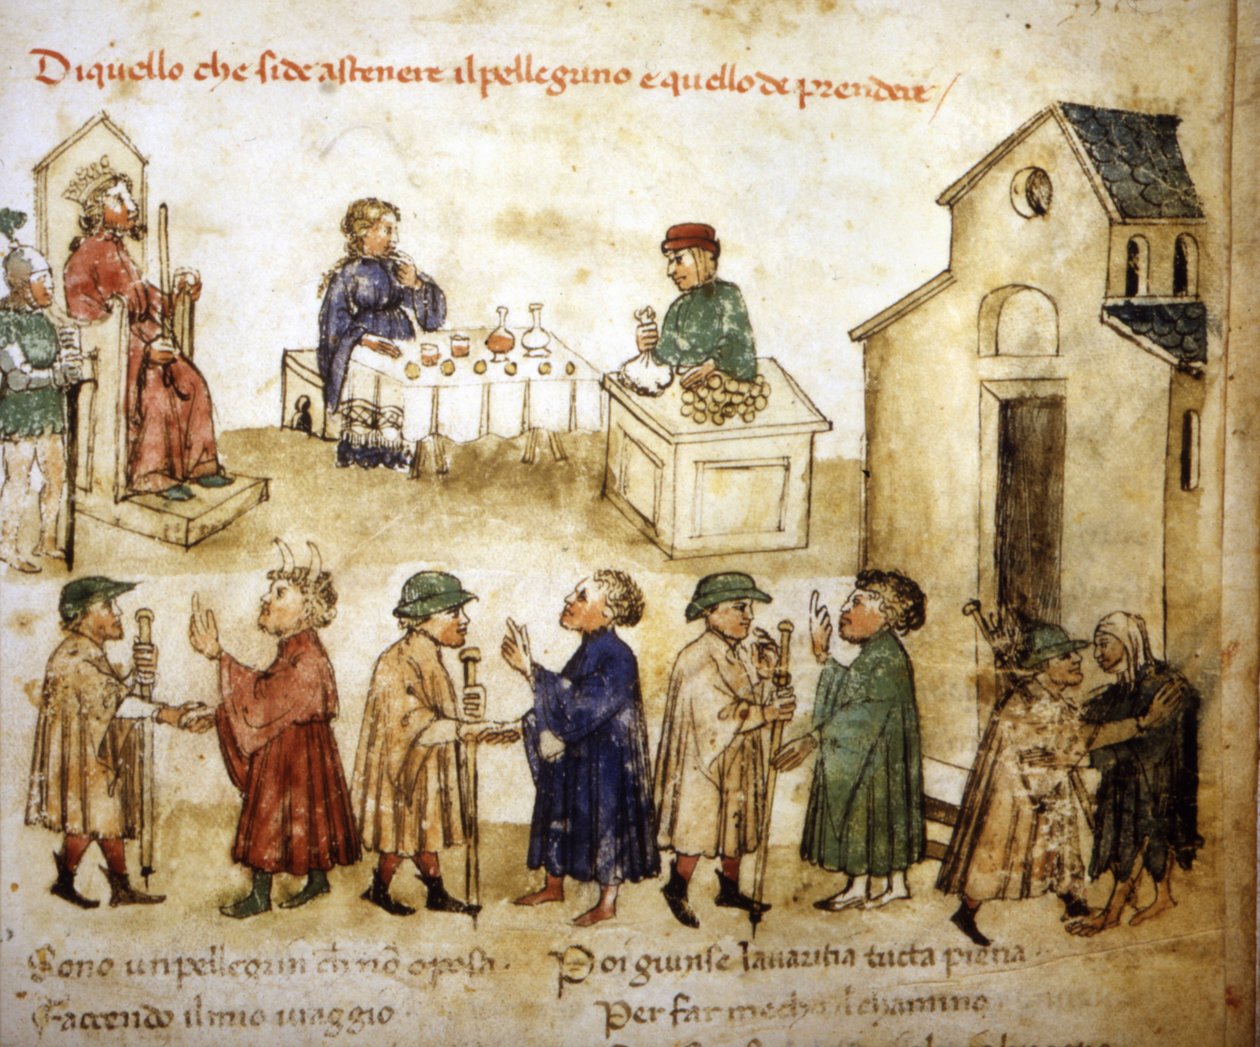 Di quello che si de astenere il pellegrino e quello de prendere
Sono un pellegrin ch nō oposa.
Faccendo il mio viaggio
Poi giunse lavaritia tucta piena
Per far mecho il chamino